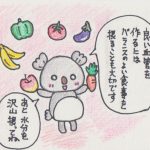 良い血管を
作るには
バランスのよい食事を
摂ることも大切です
あと水分を
沢山摂ってね